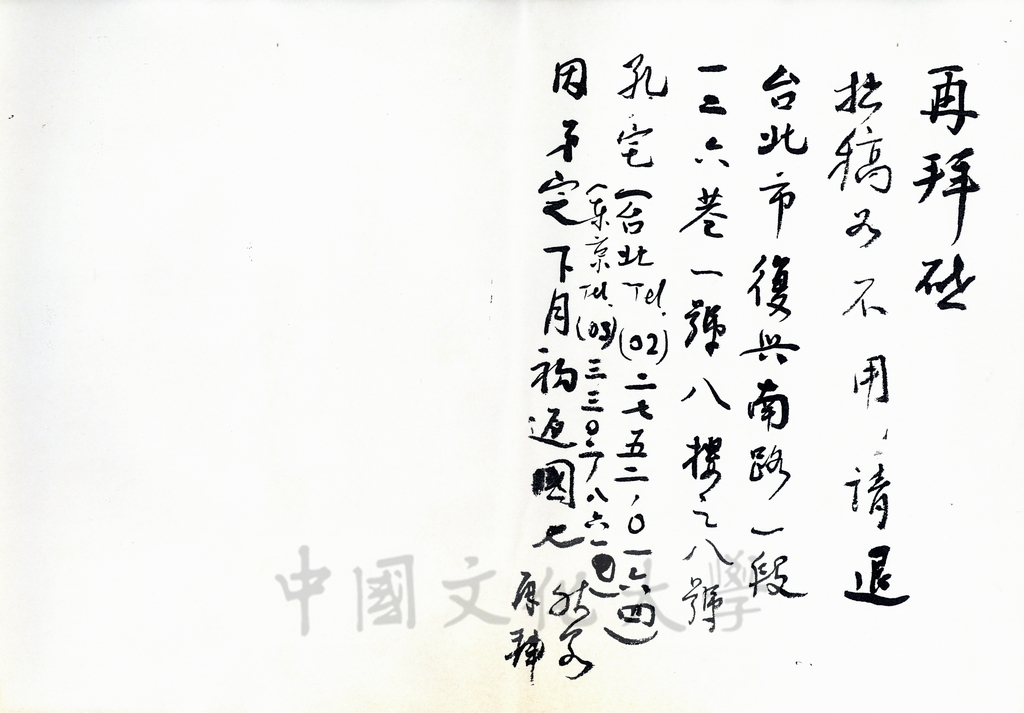 再拜啟
拙稿如不用,請退
台北市復興南路一段
一二六巷一號八樓之八號
孔宅(台北Tel.(02)二七五二,0一六四)
(東京Tel.(03)三三0
因弟定下月初返國也
中國文化大學